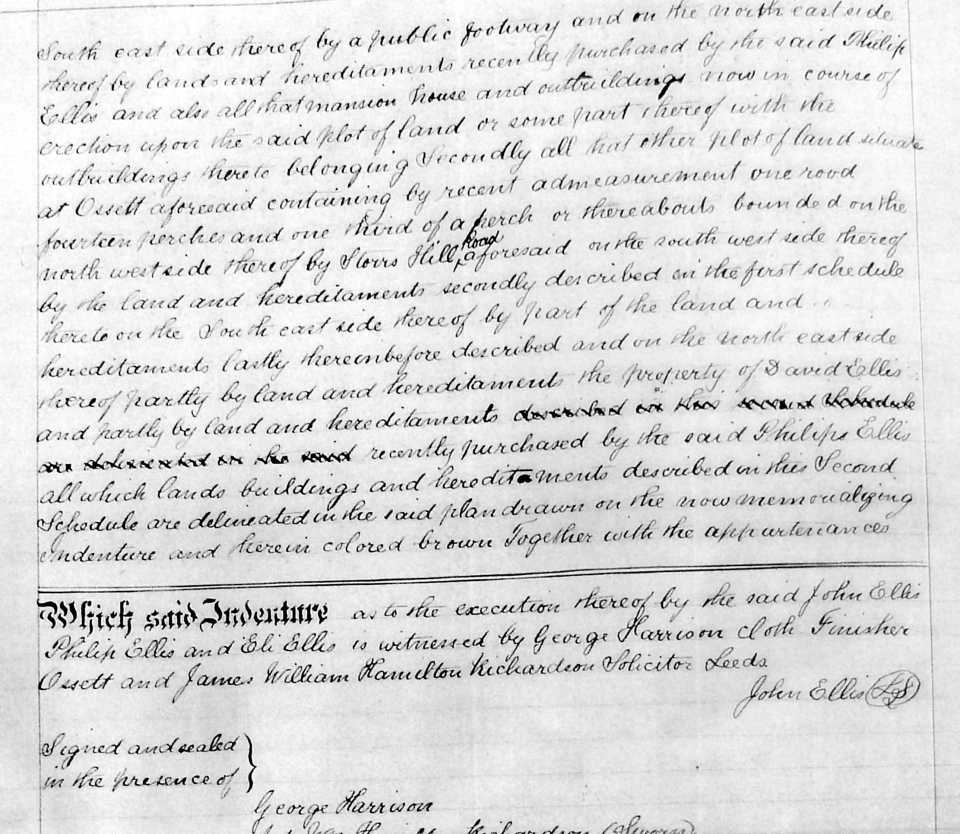 South east side thereof by a public footway and on the north east side
thereof by lands and hereditaments recently purchased by the said Philip
Ellis and also all that mansion house and outbuildings now in course of
erection upon the said plot of land or some part thereof with the
outbuildings thereto belonging Secondly all that other plot of land situate
at Ossett aforesaid containing by recent admeasurement one rood
fourteen perches and one third of a perch or thereabouts bounded on the
north west side thereof by Storrs Hill Road aforesaid on the south west side thereof
by the land and hereditaments secondly described in the first schedule
thereto on the South east side thereof by part of the land and
hereditaments lastly thereinbefore described and on the north east side
thereof partly by land and hereditaments the property of David Ellis
and partly by land and hereditaments described in this second Schedule
are delineated in the said recently purchased by the said Philips Ellis
all which lands buildings and hereditaments described in this Second
Schedule are delineated in the said plan drawn on the now memorializing
Indenture and therein colored brown Together with the appurtenances
Which said Indenture as to the execution thereof by the said John Ellis
Philip Ellis and Eli Ellis is witnessed by George Harrison cloth Finisher
Ossett and James William Hamilton Richardson Solicitor Leeds
John Ellis LS
Signed and sealed
in the presence of
George Harrison
(Sworn)